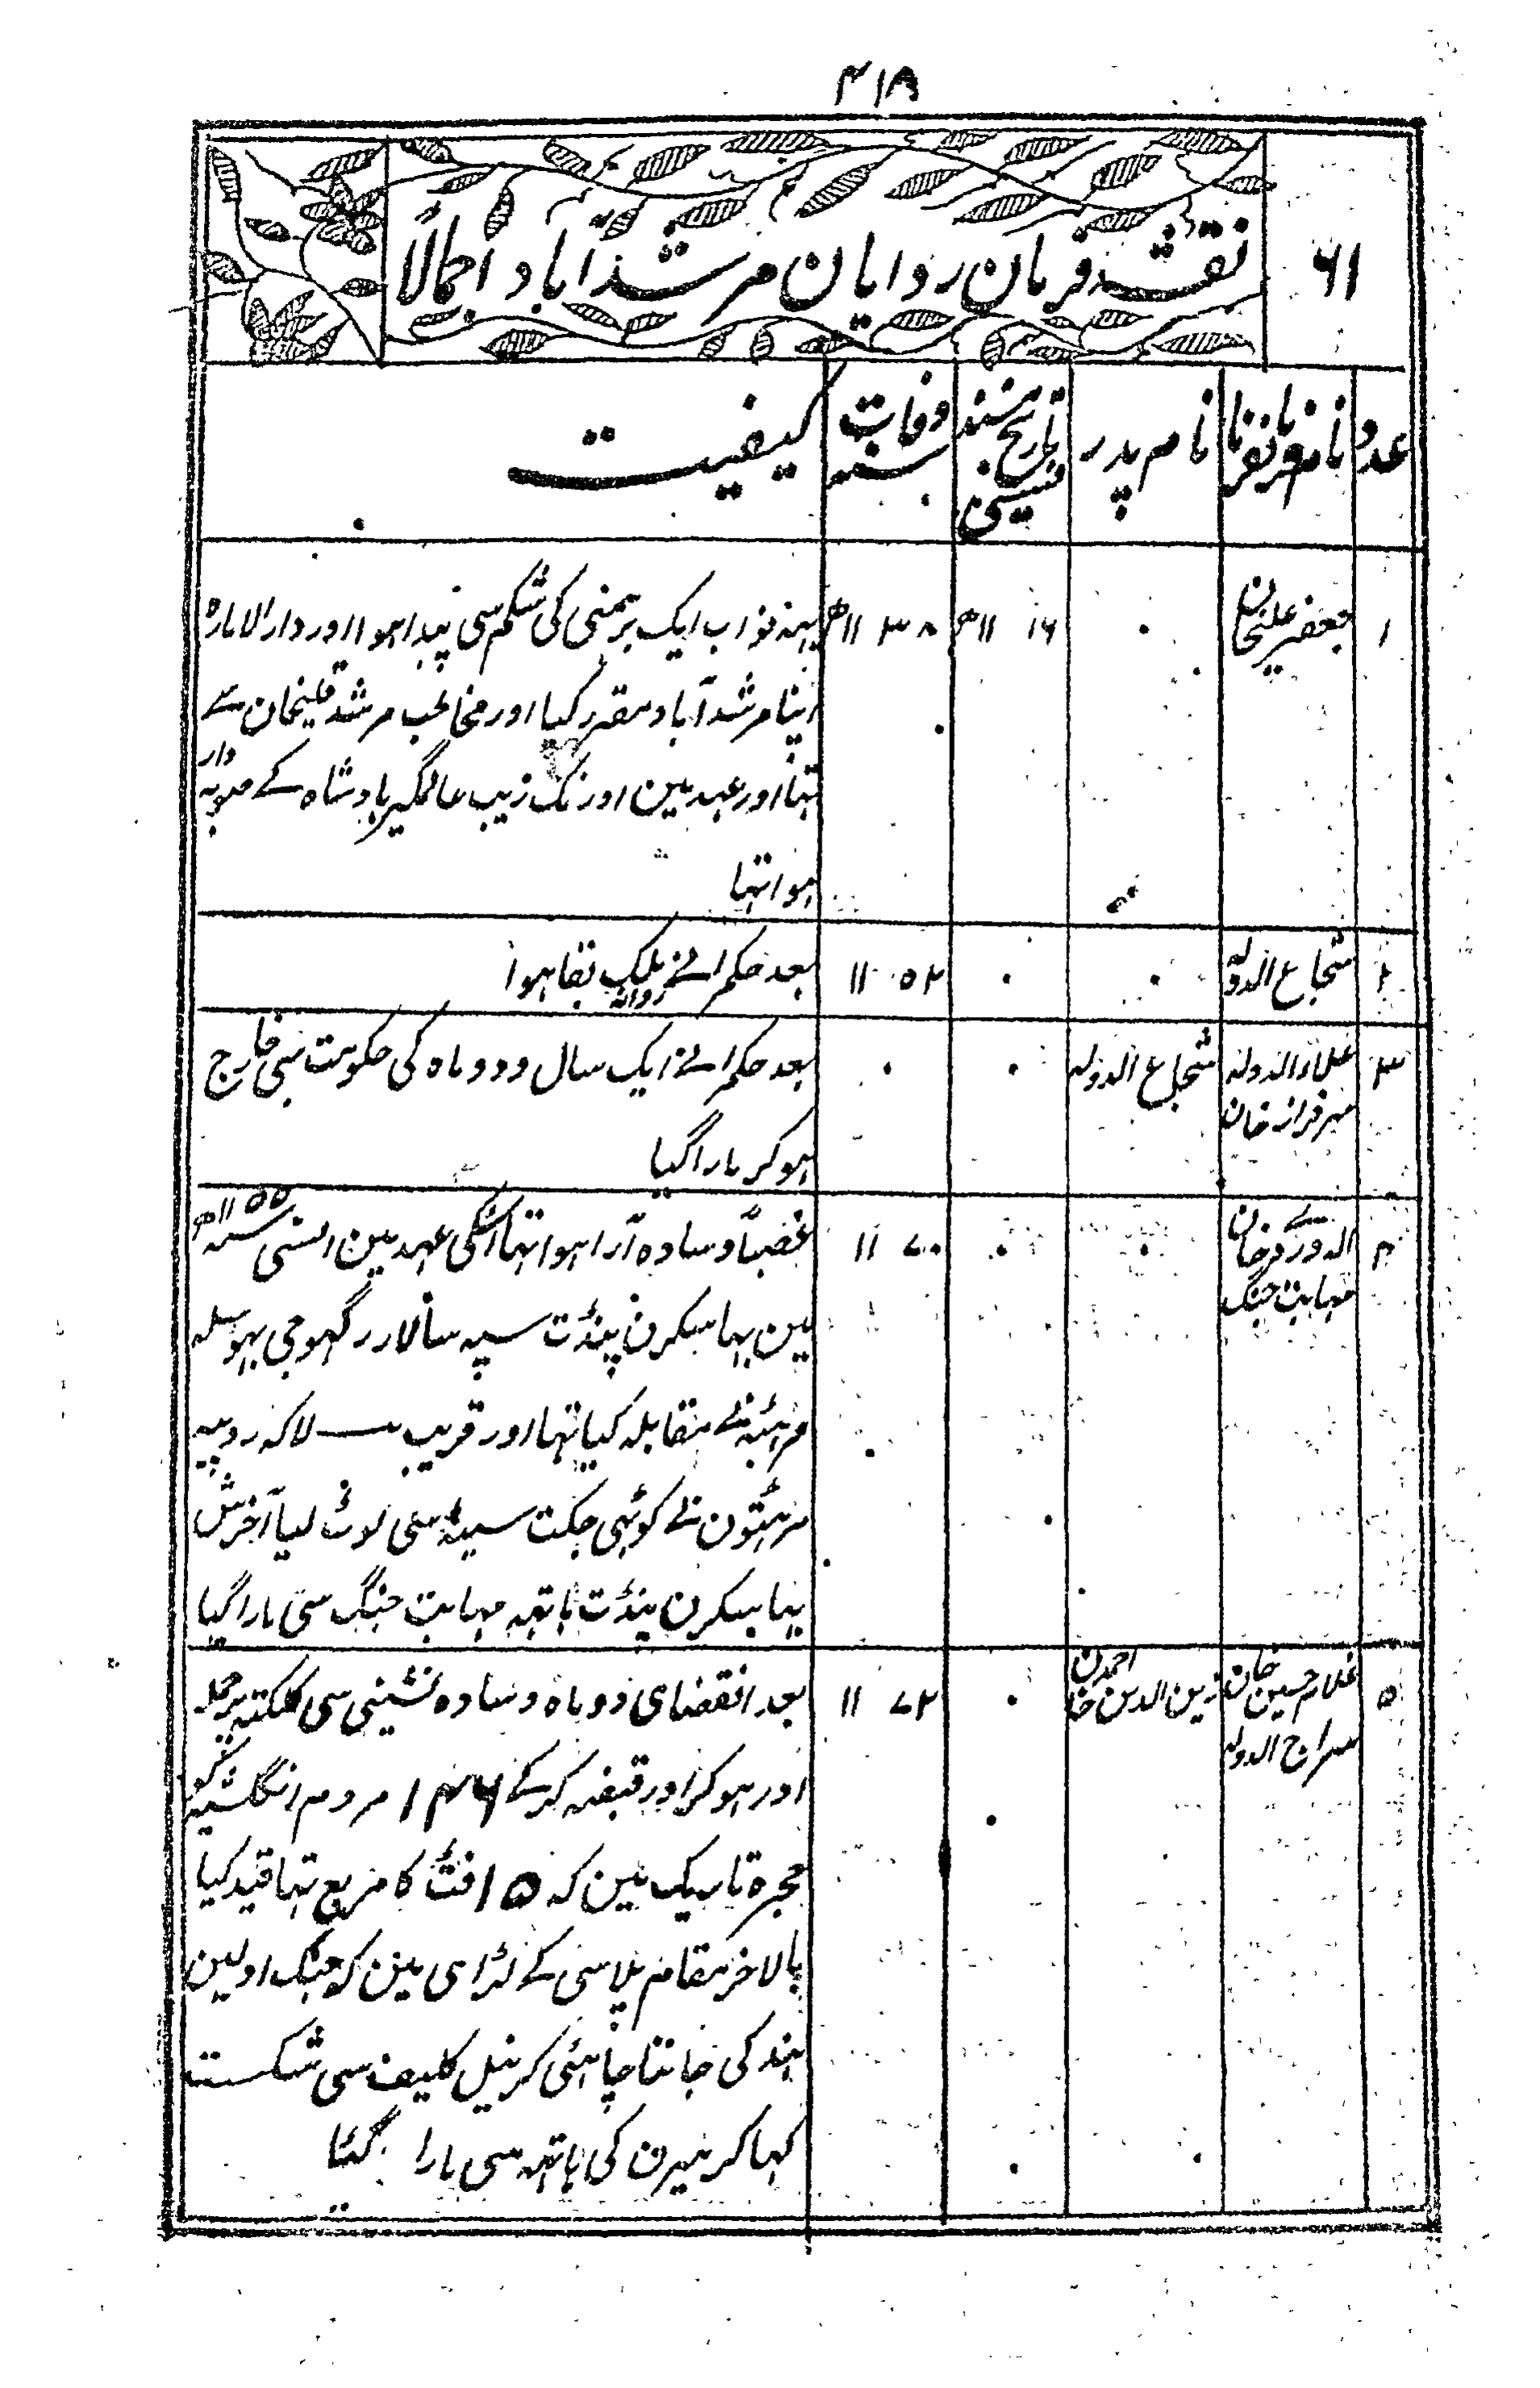 ۴۱۸
۶۱
نقشہ فرمان روایان مرشدآباد اجمالاً
عدد نام فرمانفرما نام پدر تاریخ مسند نشینی وفات سنہ کیفیت
۱ جعفر علیخان ۰ ۱۱۱۶ھ ۱۱۳۸ھ یہہ نواب ایک برہمنی کی شکم سی پیدا ہوا اور دارالامارہ
اپنا مرشدآباد مقرر کیا اور مخاطب مرشد قلیخان سے
تہا اور عہد مین اورنگ زیب عالمگیر بادشاہ کے صوبہ دار
ہوا تہا
۲ شجاع الدولہ ۰ ۰ ۱۱۵۲ بعد حکمرانے روانہ ملک بقا ہوا
۳ علاء الدولہ سرفراز خان شجاع الدولہ ۰ ۰ بعد حکمرانے ایک سال و دو ماہ کی حکومت سی خارج
ہوکر مارا گیا
۴ الہ وردیخان مہابت جنگ ۰ ۰ ۱۱۷۰ غصباً وسادہ آرا ہوا تہا اسکی عہد مین اسنی سنہ ۱۱۵۵ھ
مین بہاسکرن پنڈت سپہ سالار رگہوجی بہوسلہ
مرہٹہ نے مقابلہ کیا تہا اور قریب لاکہ روپیہ
مرہٹون نے کوٹہی جگت سیٹہ سی لوٹ لیا آخرش
بہاسکرن پنڈت ہاتہہ مہابت جنگ سی مارا گیا
۵ غلام حسین خان سراج الدولہ زین الدین احمد خان ۰ ۱۱۷۲ بعد انقضای دو ماہ وسادہ نشینی سی کلکتہ پر حملہ
اور ہوکر اور قبضہ کرکے ۱۴۶ مردم انگلشیہ کو
حجرہ تاریک مین کہ ۱۵ فٹ کا مربع تہا قید کیا
بالاخر مقام پلاسی کے لڑای مین کہ جنگ اولین
ہند کی جاننا چاہئی کرنیل کلیف سی شکست
کہا کر میرن کی ہاتہہ سی مارا گیا